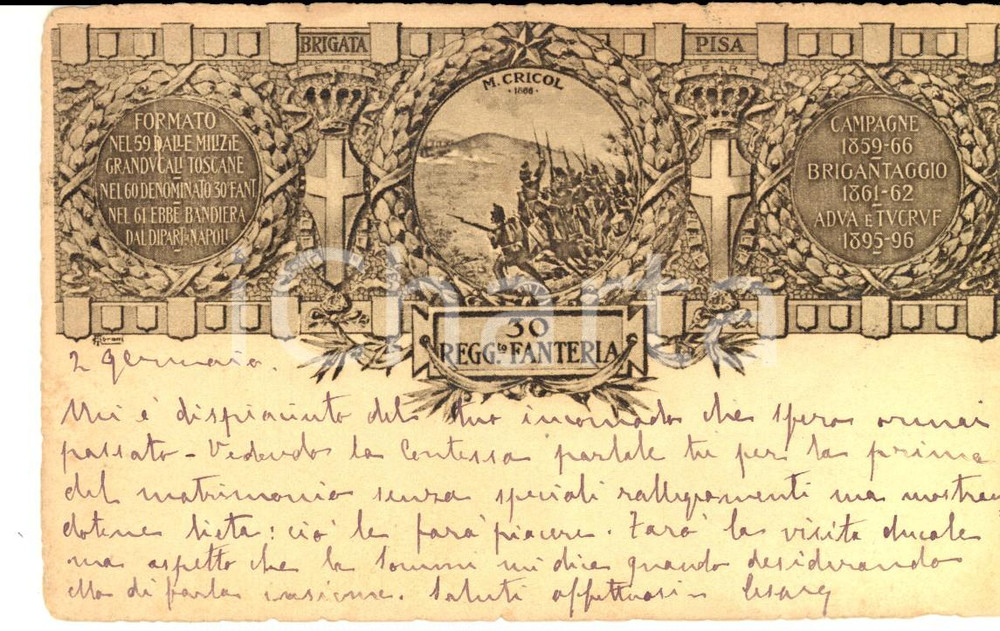 BRIGATA PISA
M. CRICOL
·1866·
FORMATO
NEL 59 DALLE MILIZIE
GRANDVCALI TOSCANE
NEL 60 DENOMINATO 30 FANT.
NEL 61 EBBE BANDIERA
DAL DIPART. NAPOLI
CAMPAGNE
1859-66
BRIGANTAGGIO
1861-62
ADVA E TVCRVF
1895-96
30
REGG.to FANTERIA
iCharta
2 Gennaio.
Mi è dispiaciuto del tuo incomodo che spero ormai
passato - Vedendo la Contessa parlale tu per la prima
del matrimonio senza speciali rallegramenti ma mostran
dotene lieta: ciò le farà piacere. Farò la visita ducale
ma aspetto che la Sommi mi dica quando desiderando
ella di farla insieme. Saluti affettuosi Cesare